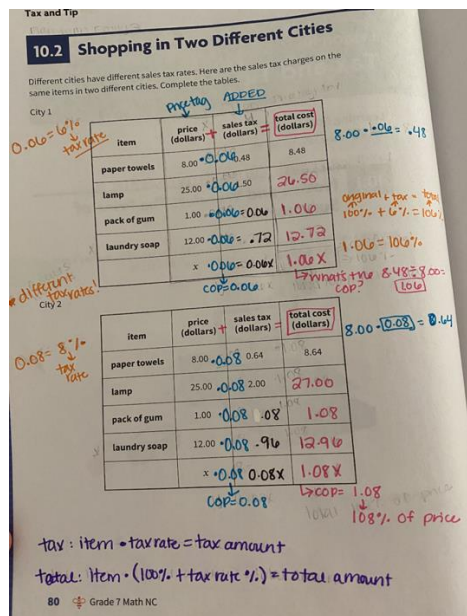 Tax and Tip
10.2 Shopping in Two Different Cities
Different cities have different sales tax rates. Here are the sales tax charges on the
same items in two different cities. Complete the tables.
City 1
Price tag ADDED
0.06 = 6%
tax rate
item price (dollars) + sales tax (dollars) = total cost (dollars)
8.00 · .06 = .48
paper towels 8.00 · 0.06 0.48 8.48
lamp 25.00 · 0.06 1.50 26.50
original + tax = total
100% + 6% = 106%
pack of gum 1.00 · 0.06 = 0.06 1.06
laundry soap 12.00 · 0.06 = .72 12.72
1.06 = 106%
x · 0.06 = 0.06x 1.06x
COP = 0.06
what's the COP? 8.48 ÷ 8.00 = 1.06
different tax rates!
City 2
0.08 = 8%
tax rate
item price (dollars) + sales tax (dollars) = total cost (dollars)
8.00 · 0.08 = 0.64
paper towels 8.00 · 0.08 0.64 8.64
lamp 25.00 · 0.08 2.00 27.00
pack of gum 1.00 · 0.08 .08 1.08
laundry soap 12.00 · 0.08 .96 12.96
x · 0.08 0.08x 1.08x
COP = 0.08
COP = 1.08
108% of price
tax : item · tax rate = tax amount
total : Item · (100% + tax rate %) = total amount
80 Grade 7 Math NC